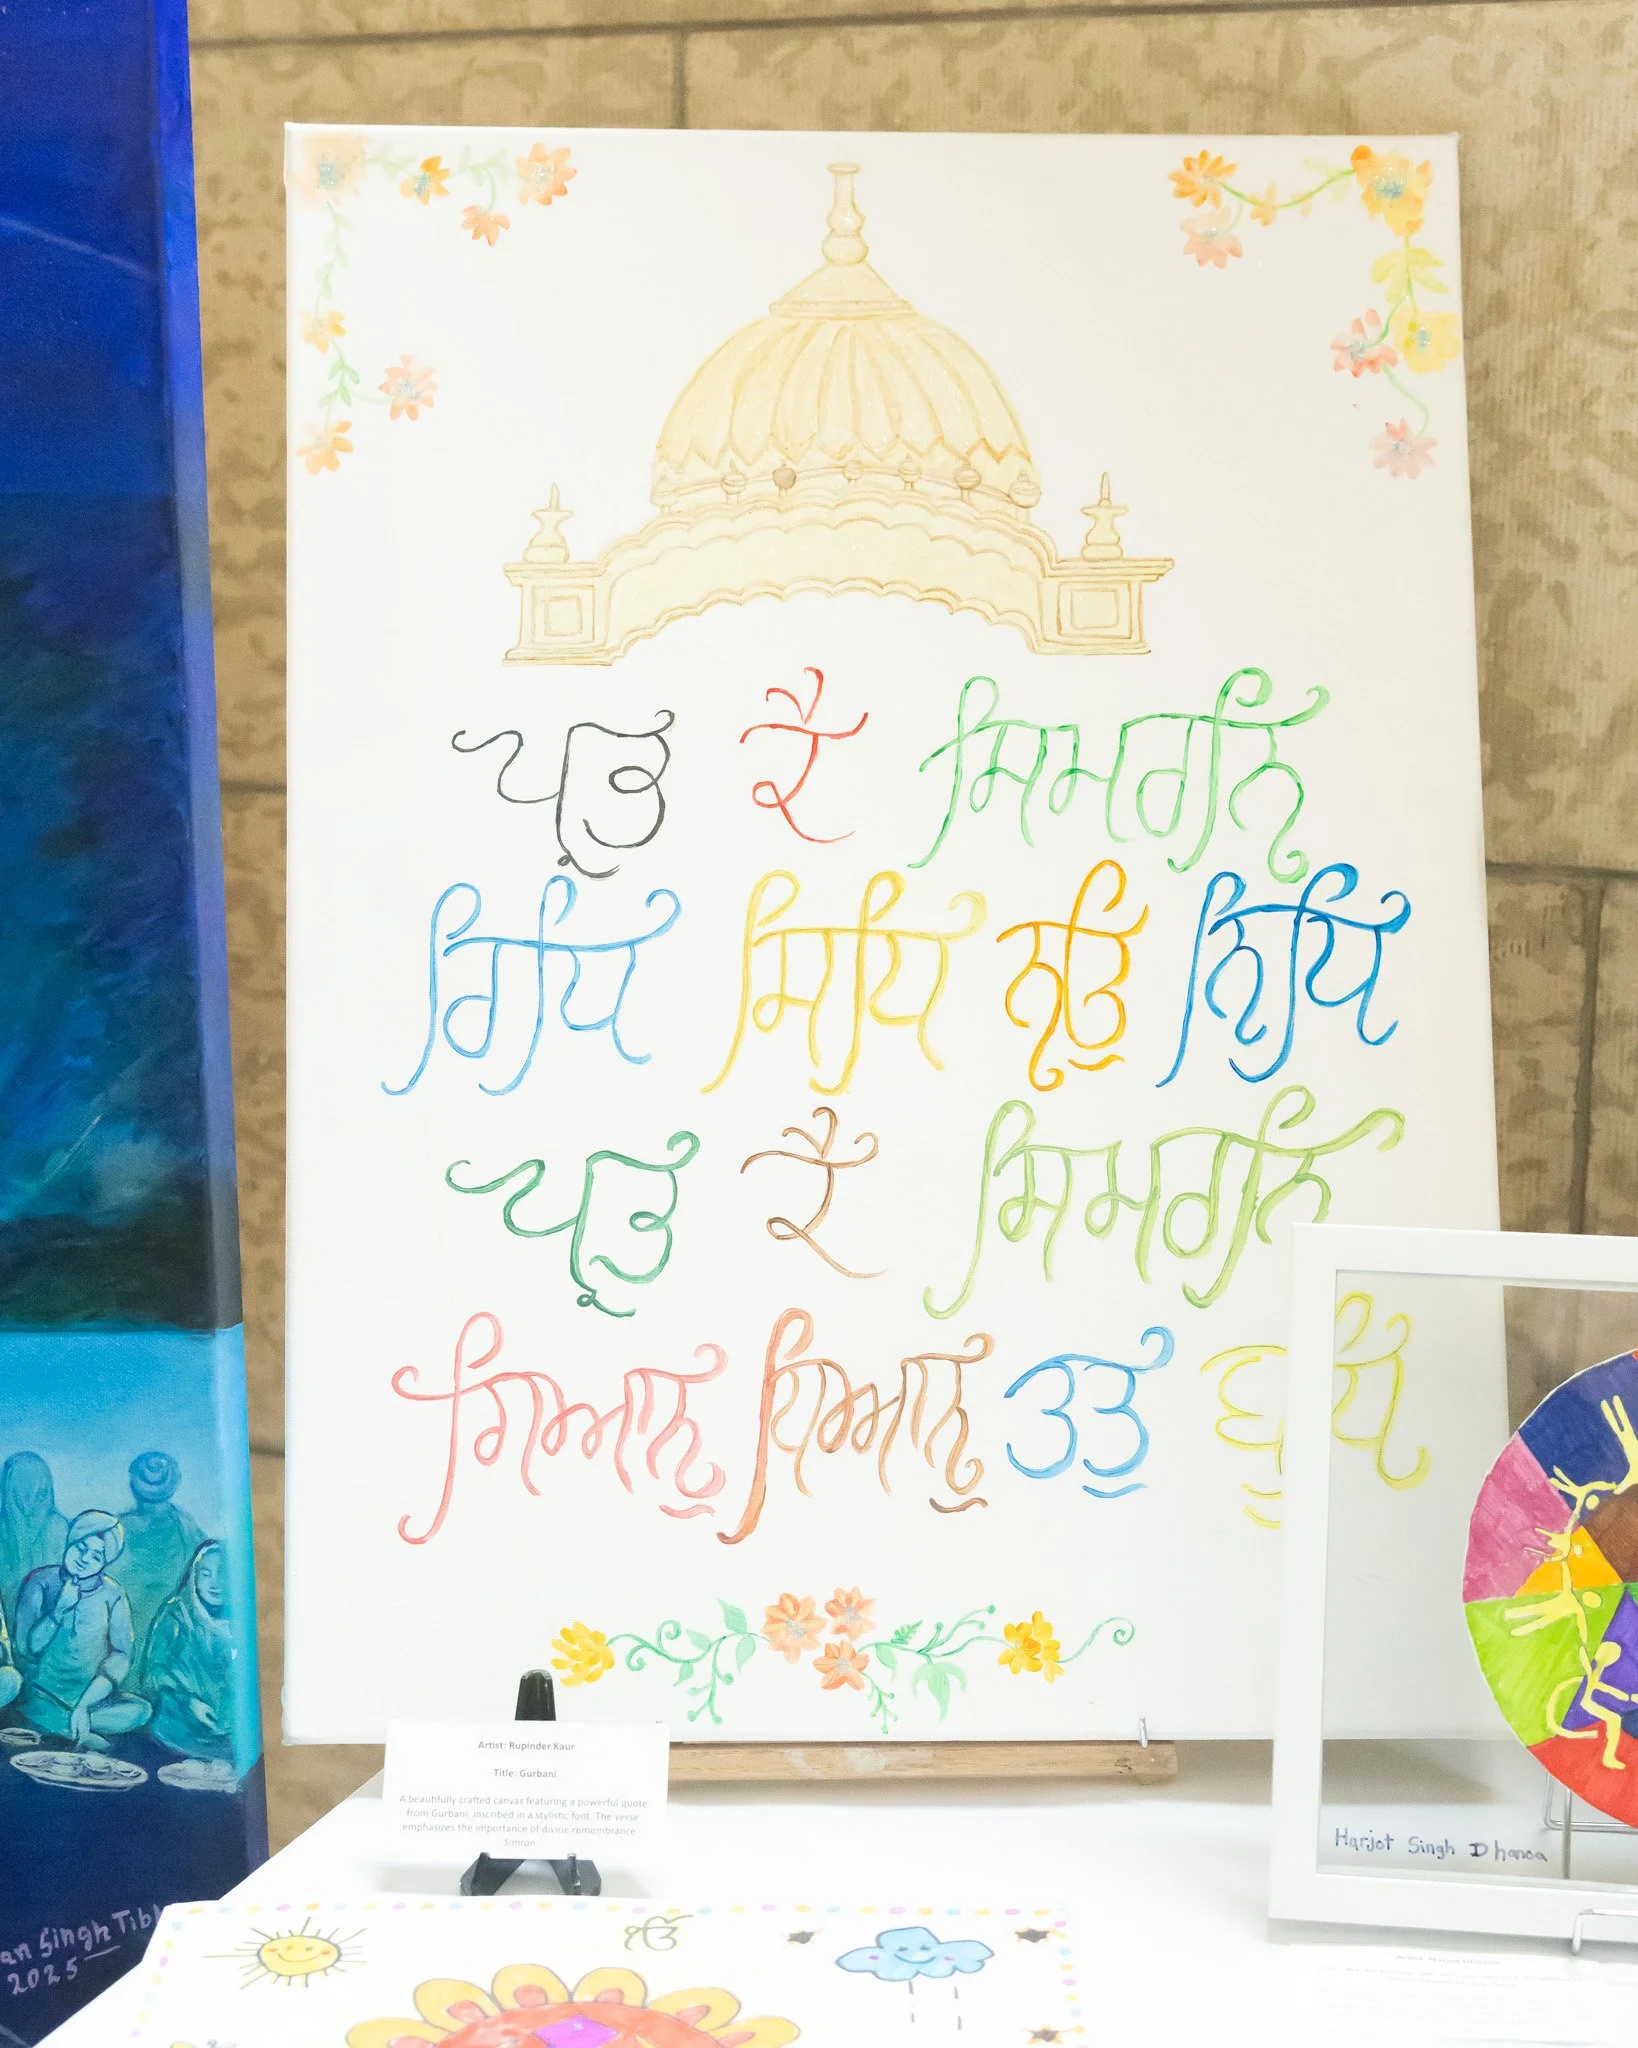 ਪ੍ਰਭ ਕੈ ਸਿਮਰਨਿ
ਰਿਧਿ ਸਿਧਿ ਨਉ ਨਿਧਿ
ਪ੍ਰਭ ਕੈ ਸਿਮਰਨਿ
ਗਿਆਨੁ ਧਿਆਨੁ ਤਤੁ ਬੁਧਿ
Artist: Rupinder Kaur
Title: Gurbani
A beautifully crafted canvas featuring a powerful quote
from Gurbani, inscribed in a stylistic font. The verse
emphasizes the importance of divine remembrance -
Simran.
Harjot Singh Dhanoa
Singh
2025
ੴ